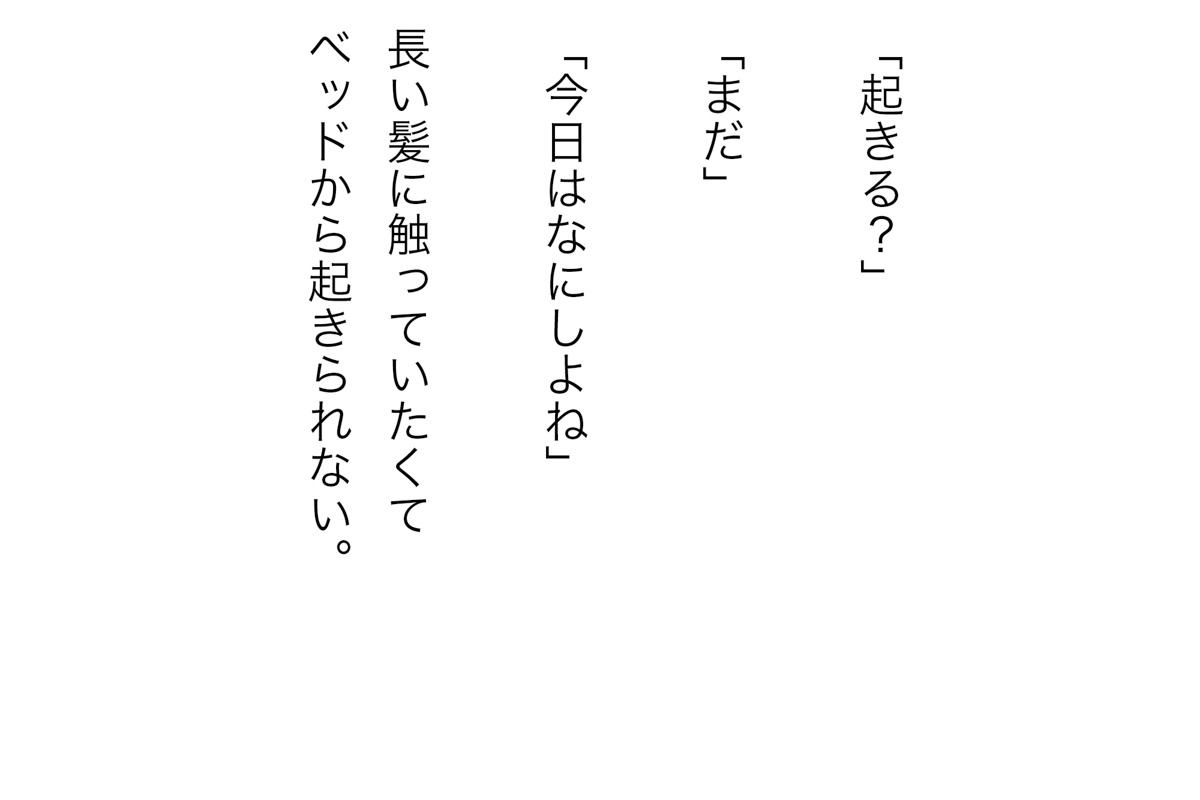 「起きる？」
「まだ」
「今日はなにしよね」
長い髪に触っていたくて
ベッドから起きられない。